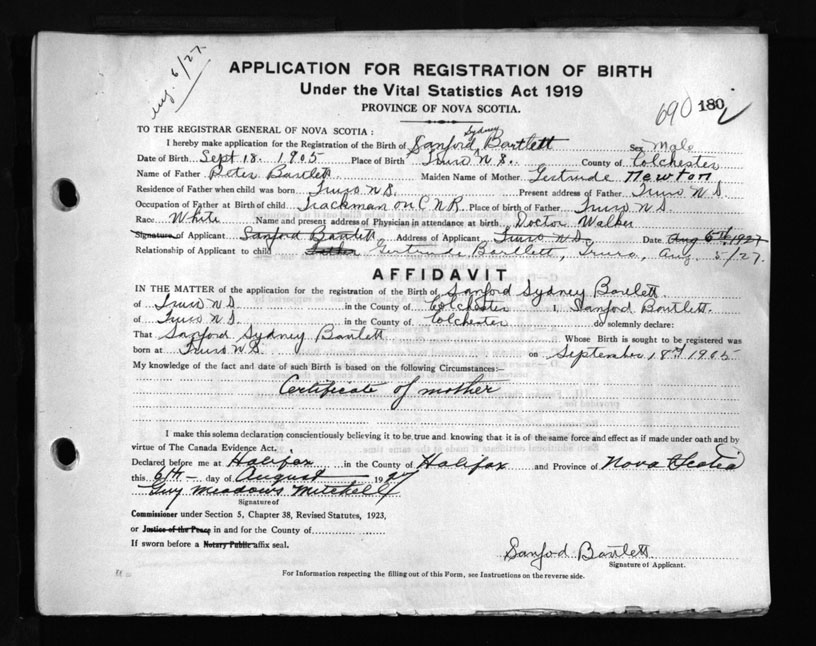 Aug. 6/27.
APPLICATION FOR REGISTRATION OF BIRTH
Under the Vital Statistics Act 1919
PROVINCE OF NOVA SCOTIA.
690 180
TO THE REGISTRAR GENERAL OF NOVA SCOTIA:
Sydney
I hereby make application for the Registration of the Birth of Sanford Bartlett Sex Male
Date of Birth Sept 18. 1905 Place of Birth Truro N.S. County of Colchester
Name of Father Peter Bartlett Maiden Name of Mother Gertrude Newton
Residence of Father when child was born Truro N S. Present address of Father Truro N S
Occupation of Father at Birth of child Trackman on C N R. Place of birth of Father Truro N S.
Race White Name and present address of Physician in attendance at birth Doctor Walker
Signature of Applicant Sanford Bartlett Address of Applicant Truro N S. Date Aug 6th 1927
Relationship of Applicant to child Gertrude Bartlett, Truro, Aug. 5/27.
AFFIDAVIT
IN THE MATTER of the application for the registration of the Birth of Sanford Sydney Bartlett.
of Truro N S. in the County of Colchester I, Sanford Bartlett.
of Truro N S. in the County of Colchester do solemnly declare:
That Sanford Sydney Bartlett Whose Birth is sought to be registered was
born at Truro N S. on September 18th 1905
My knowledge of the fact and date of such Birth is based on the following Circumstances:—
Certificate of mother
I make this solemn declaration conscientiously believing it to be true and knowing that it is of the same force and effect as if made under oath and by
virtue of The Canada Evidence Act.
Declared before me at Halifax in the County of Halifax and Province of Nova Scotia
this 6th day of August 1927
Guy Meadows Mitchell
Signature of
Commissioner under Section 5, Chapter 38, Revised Statutes, 1923,
or Justice of the Peace in and for the County of
If sworn before a Notary Public affix seal.
Sanford Bartlett
Signature of Applicant.
For Information respecting the filling out of this Form, see Instructions on the reverse side.